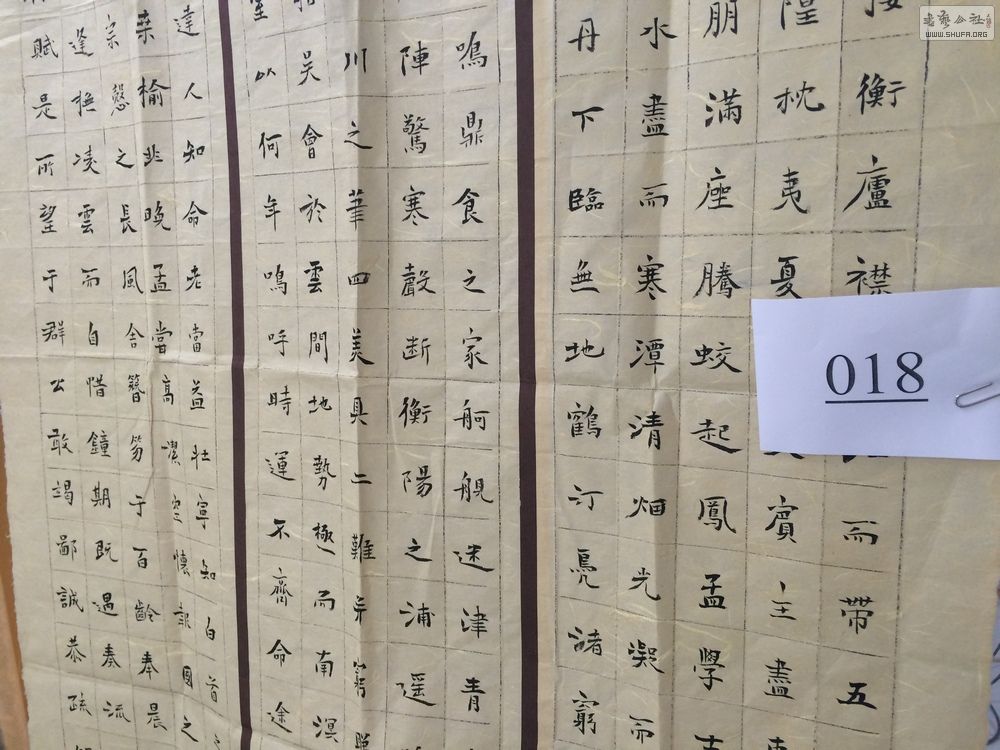 書藝公社
WWW.SHUFA.ORG
接衡廬襟
而帶五
隍枕夷夏
賓主盡
朋滿座騰蛟起鳳孟學
水盡而寒潭清烟光凝而
丹下臨無地鶴汀鳧渚窮
018
鳴鼎食之家舸艦迷津青
陣驚寒聲断衡陽之浦遥
川之筆四美具二難并窮睇
吳會於雲間地勢極而南溟
望以何年鳴呼時運不齊命途
達人知命老當益壯寧知白首
桑榆非晚孟嘗高潔空懷報囯之
宗慤之長風舍簪笏于百齡奉晨
逢撫凌雲而自惜鐘期既遇奏流
賦是所望于群公敢竭鄙誠恭疏